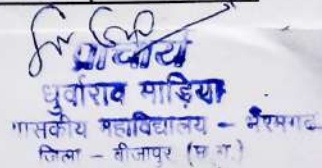 प्राचार्य
धुर्वाराव माड़िया
शासकीय महाविद्यालय - भैरमगढ
जिला - बीजापुर (छ.ग.)